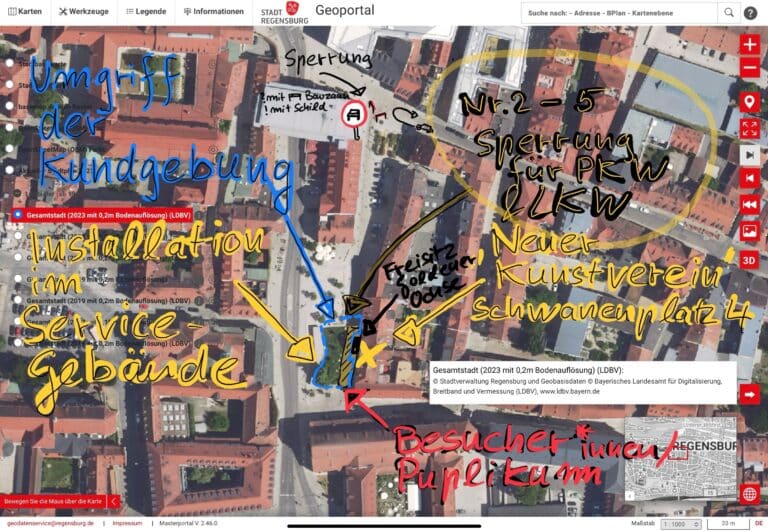 Karten
Werkzeuge
Legende
Informationen
STADT
REGENSBURG
Geoportal
Suche nach: - Adresse - BPlan - Kartenebene
Sperrung
! mit Bauzaun
! mit Schild
Umgriff
der
Kundgebung
Nr. 2 - 5
Sperrung
für PKW
& LKW
Gesamtstadt (2023 mit 0,2m Bodenauflösung) (LDBV)
Installation
im
Service-
gebäude
Gesamtstadt (2019 mit 0,2m Bodenauflösung) (LDBV)
Freisitz
Goldener
Ochse
'Neuer
Kunstverein'
Schwanenplatz 4
3D
Gesamtstadt (2023 mit 0,2m Bodenauflösung) (LDBV):
© Stadtverwaltung Regensburg und Geobasisdaten © Bayerisches Landesamt für Digitalisierung,
Breitband und Vermessung (LDBV), www.ldbv.bayern.de
Besucher*innen/
Puplikum
REGENSBUR
Bewegen Sie die Maus über die Karte
geodatenservice@regensburg.de
Impressum
Masterportal V. 2.46.0
Maßstab
1 : 1000
20 m
DE